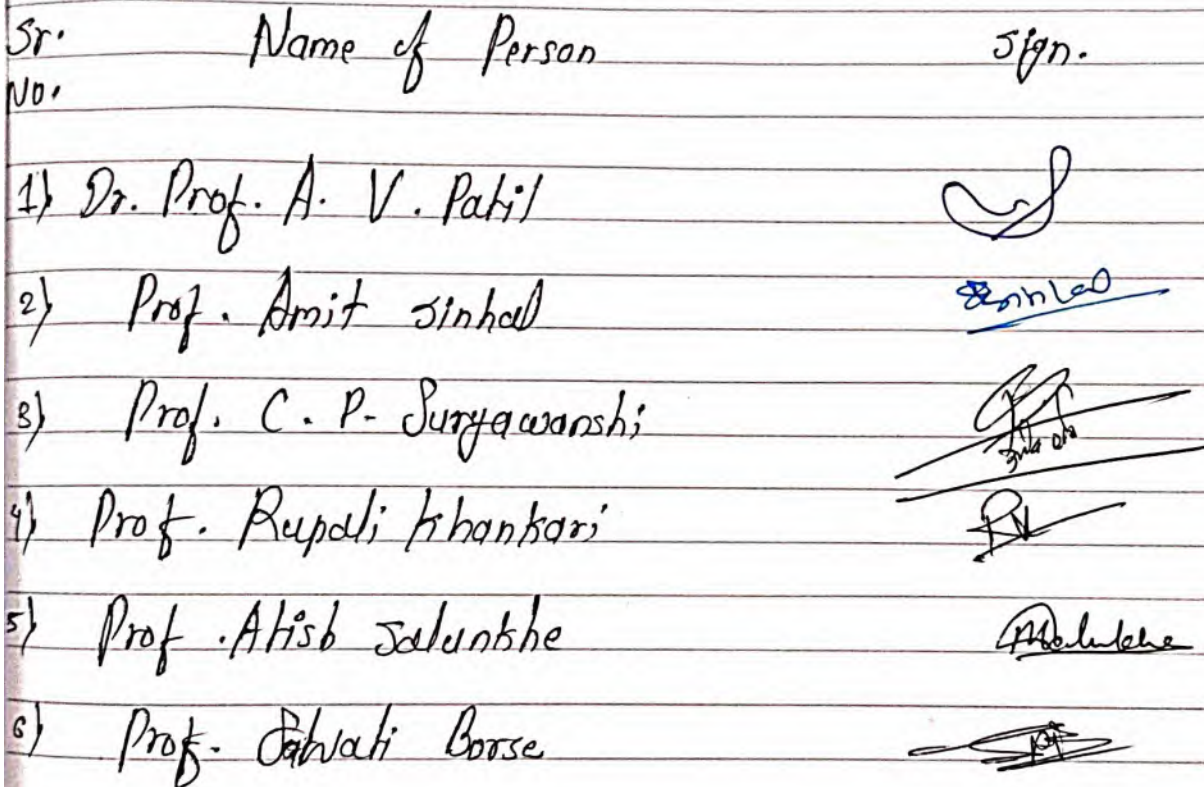 Sr. Name of Person Sign.
No.
1) Dr. Prof. A. V. Patil
2) Prof. Amit Sinhal
3) Prof. C. P. Suryawanshi
4) Prof. Rupali Khankari
5) Prof. Atish Salunkhe
6) Prof. Borse